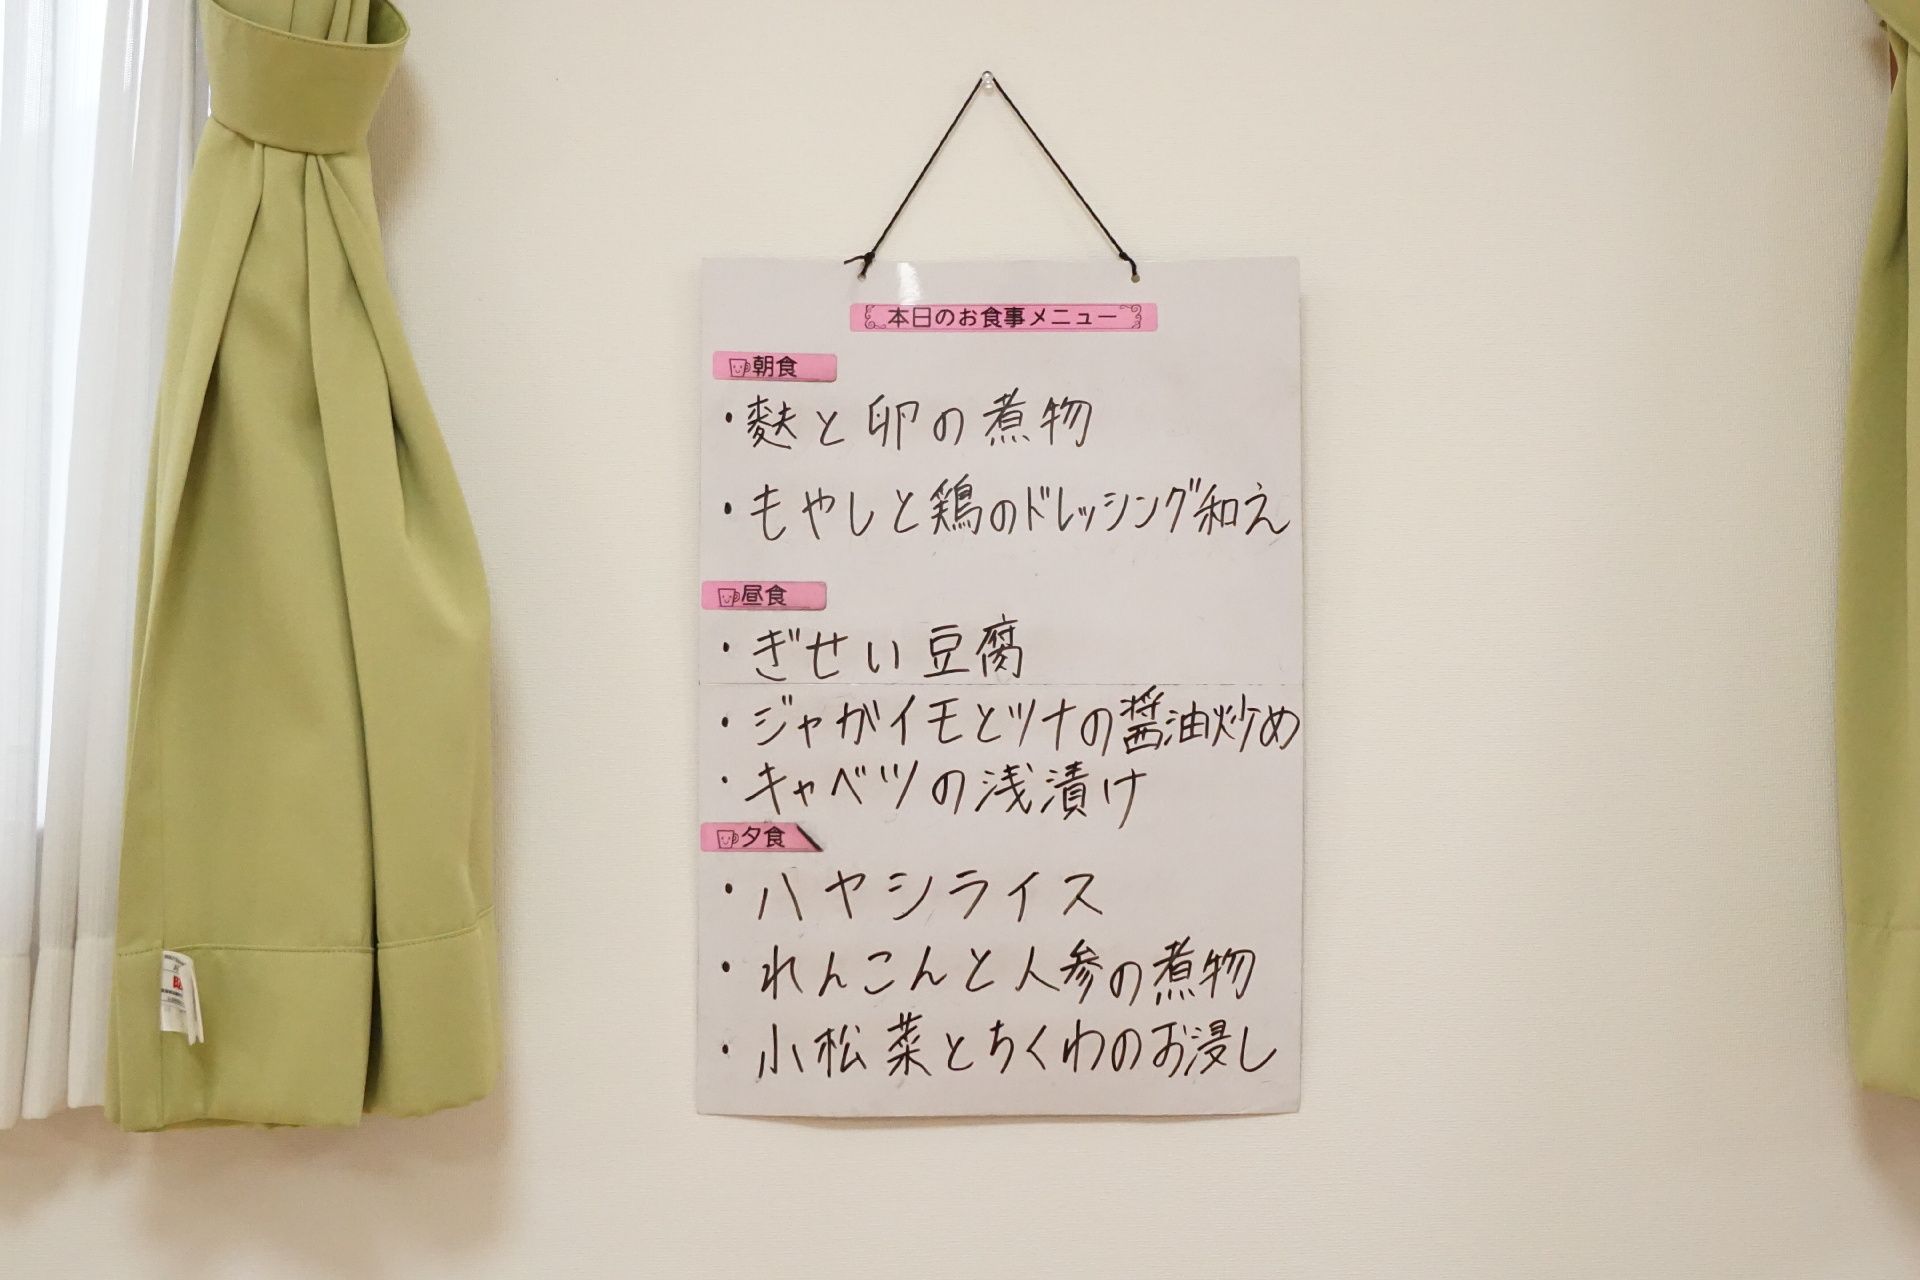 本日のお食事メニュー
朝食
・麩と卵の煮物
・もやしと鶏のドレッシング和え
昼食
・ぎせい豆腐
・ジャガイモとツナの醤油炒め
・キャベツの浅漬け
夕食
・ハヤシライス
・れんこんと人参の煮物
・小松菜とちくわのお浸し